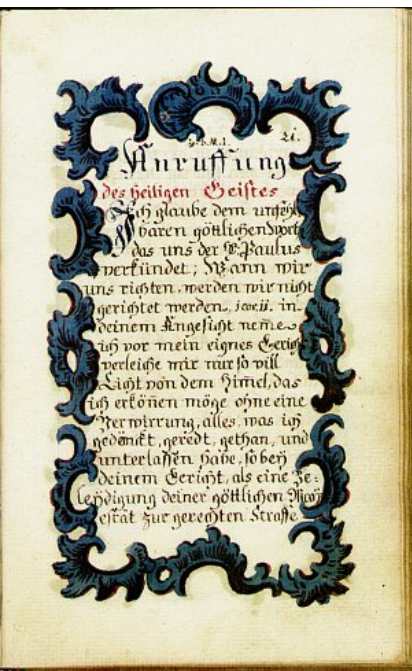 21.
Anruffung
des heiligen Geistes
Ich glaube dem unfehl
baren göttlichen Wort
das uns der H: Paulus
verkündet; Wann wir
uns richten, werden wir nicht
gerichtet werden, 1 cor: ii. in
deinem Angesicht neme
ich vor mein eignes Gericht
verleiche mir nur so vill
Licht von dem Himel, das
ich erkönen möge ohne eine
Verwirrung, alles, was ich
gedenckt, geredt, gethan, und
unterlassen habe, so bey
deinem Gericht, als eine Be:
leydigung deiner göttlichen May
estät zur gerechten Straffe